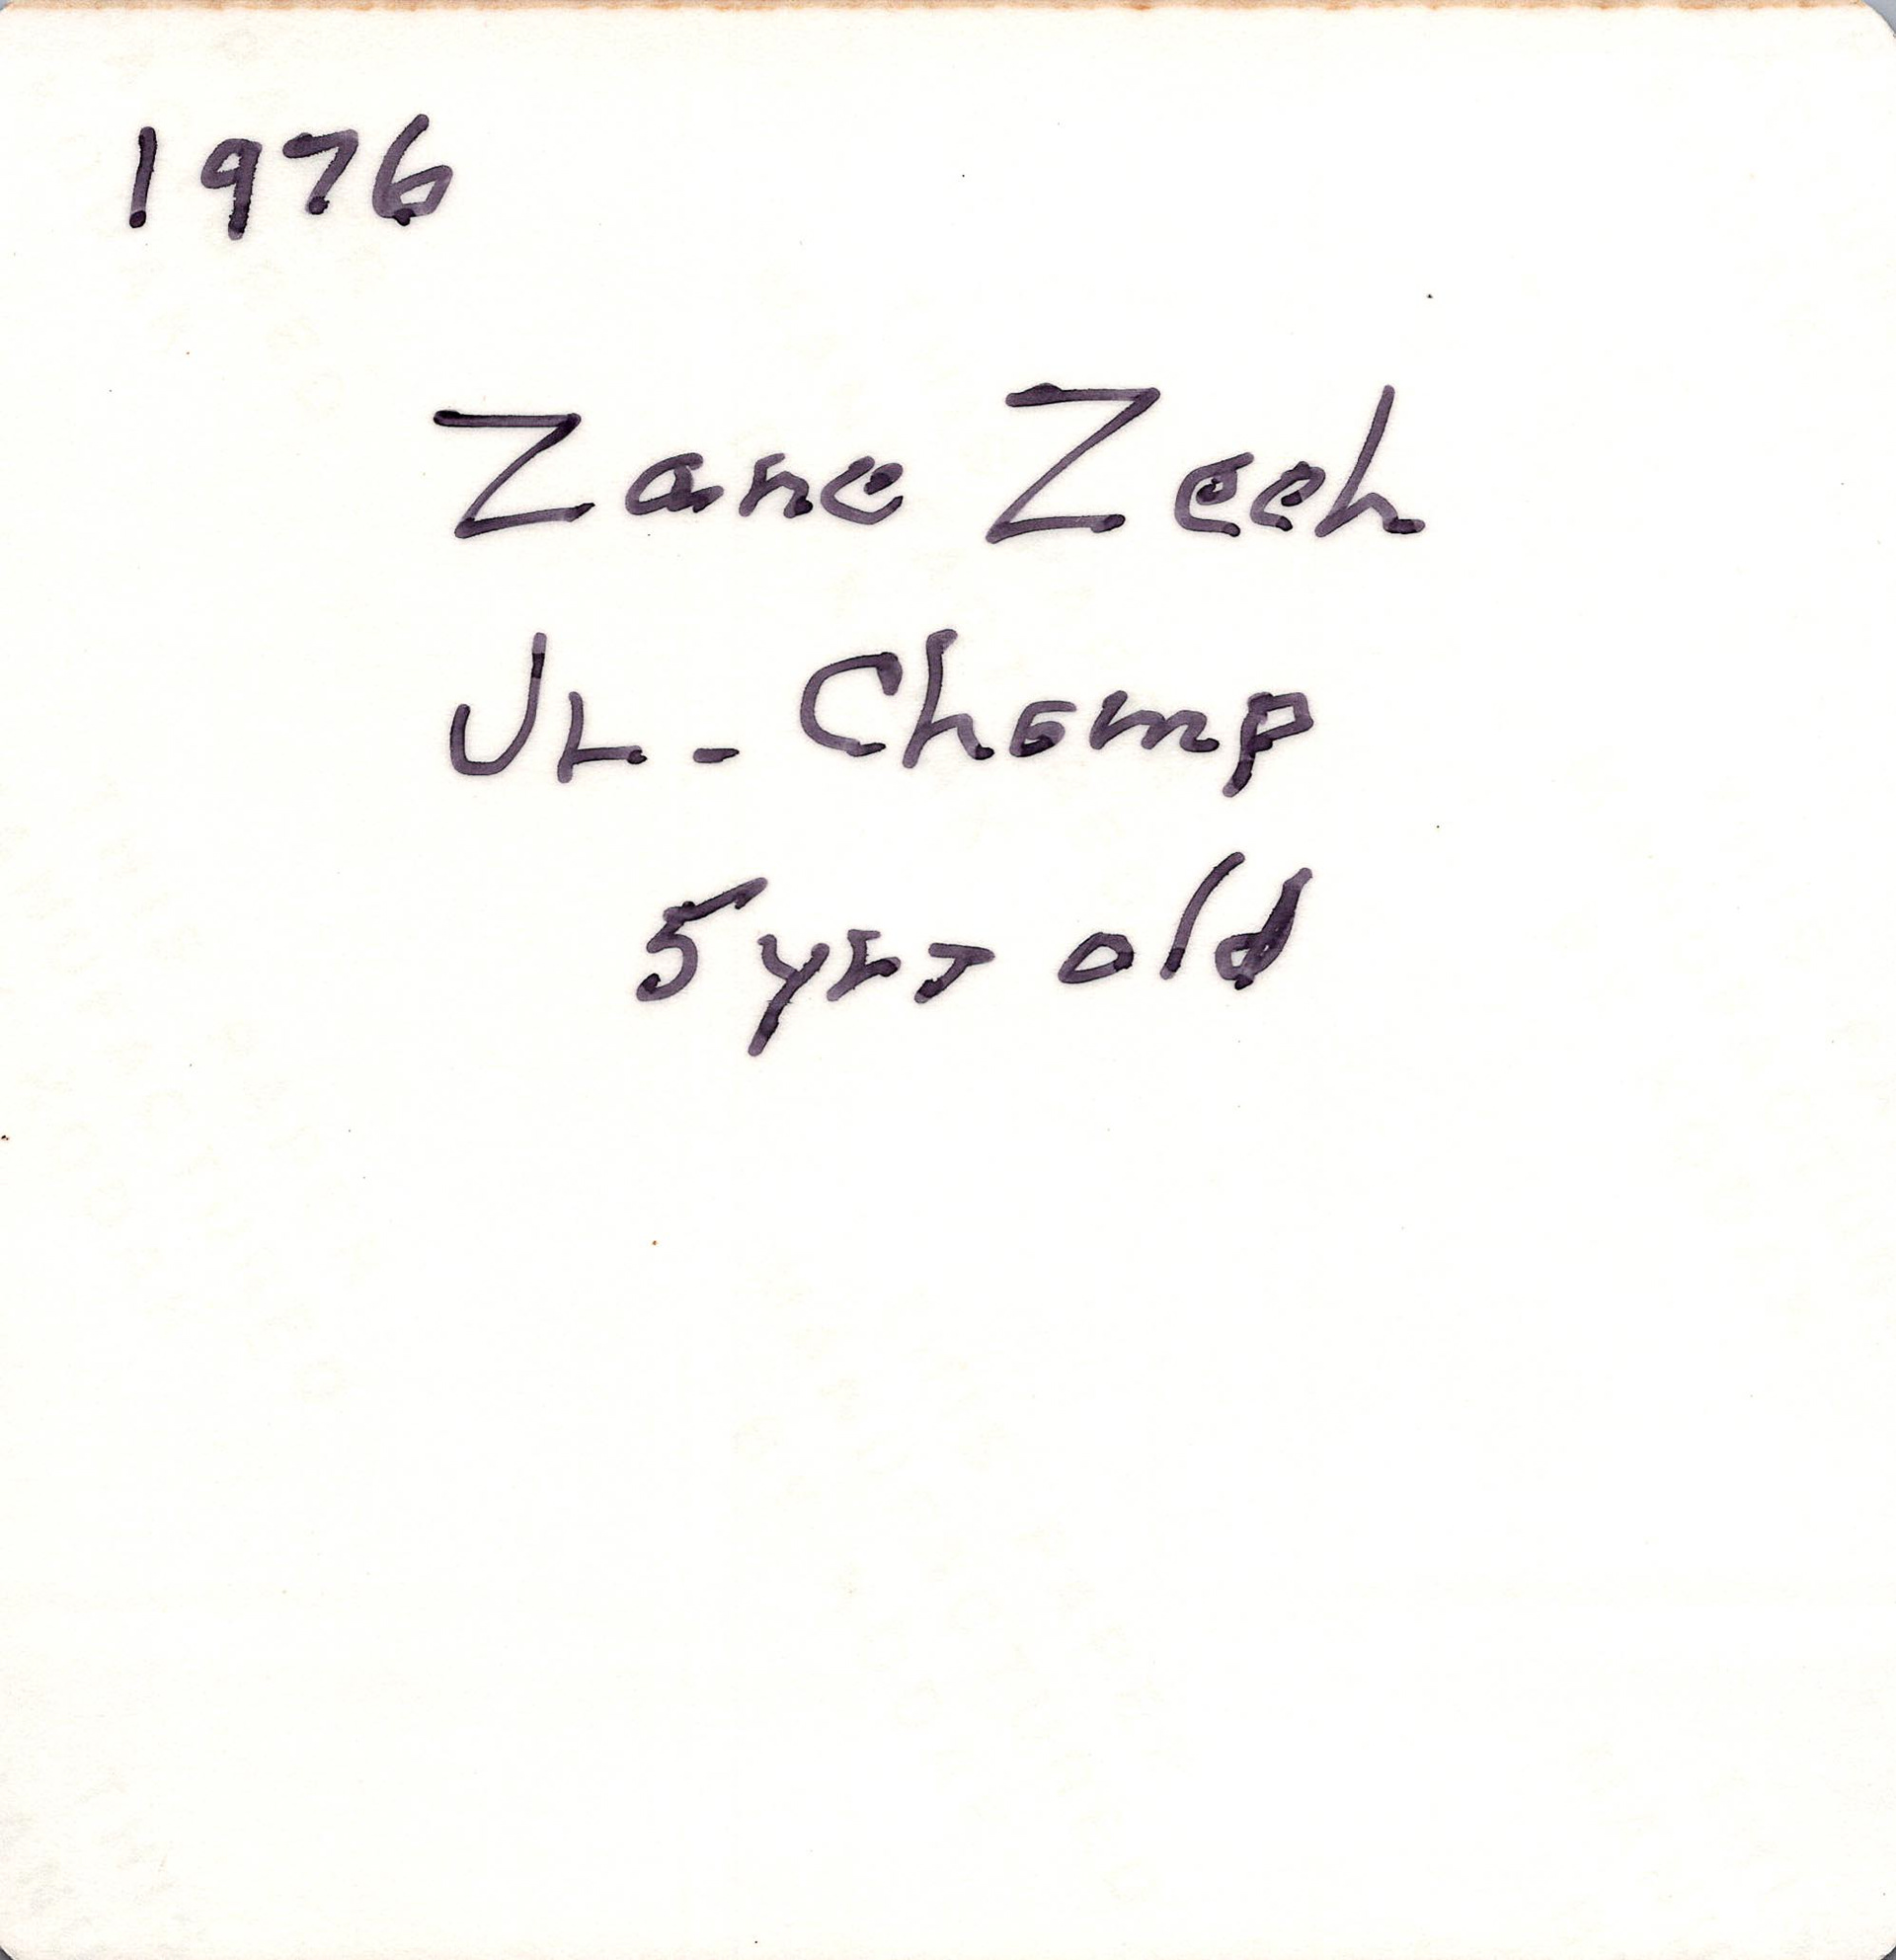 1976
Zane Zeeh
Jr. - Champ
5 yrs old